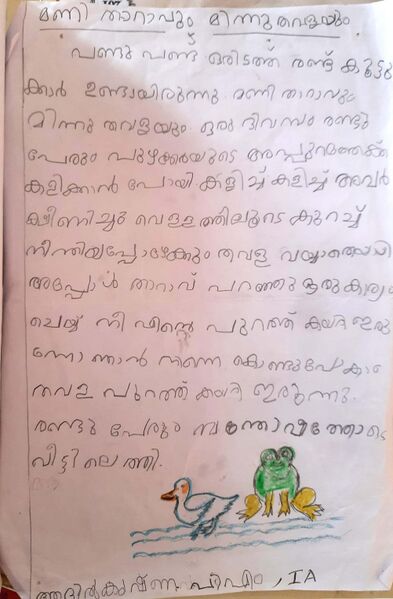 മണി താറാവും മിന്നുതവളയും
പണ്ടു പണ്ട് ഒരിടത്ത് രണ്ട് കൂട്ടു
ക്കാർ ഉണ്ടായിരുന്നു മണി താറാവും
മിന്നു തവളയും ഒരു ദിവസം രണ്ടും
പേരും പുഴക്കരയുടെ അപ്പുറത്തേക്ക്
കളിക്കാൻ പോയി കളിച്ച് കളിച്ച് അവർ
ക്ഷീണിച്ചു വെള്ളത്തിലൂടെ കുറച്ച്
നീന്തിയപ്പോഴേക്കും തവള വയ്യാതെയായി
അപ്പോൾ താറാവ് പറഞ്ഞു ഒരുകാര്യം
ചെയ്യ് നീ എന്റെ പുറത്ത് കയറി ഇരു
ന്നോ ഞാൻ നിന്നെ കൊണ്ടുപോകാം
തവള പുറത്ത് കയറി ഇരുന്നു.
രണ്ടു പേരും സന്തോഷത്തോടെ
വീട്ടിലെത്തി.
ആദിൽകൃഷ്ണ , IA